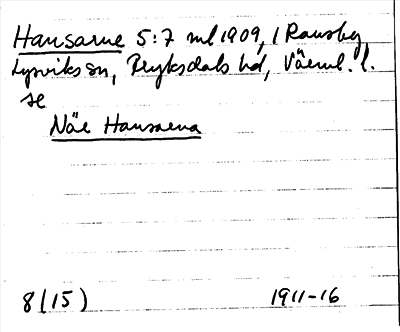 Hansarne 5:7 ml 1909, i Ransby
Lysviks sn, Fryksdals hd, Värml. l.
se
Näe Hansarna
8(15) 1911-16